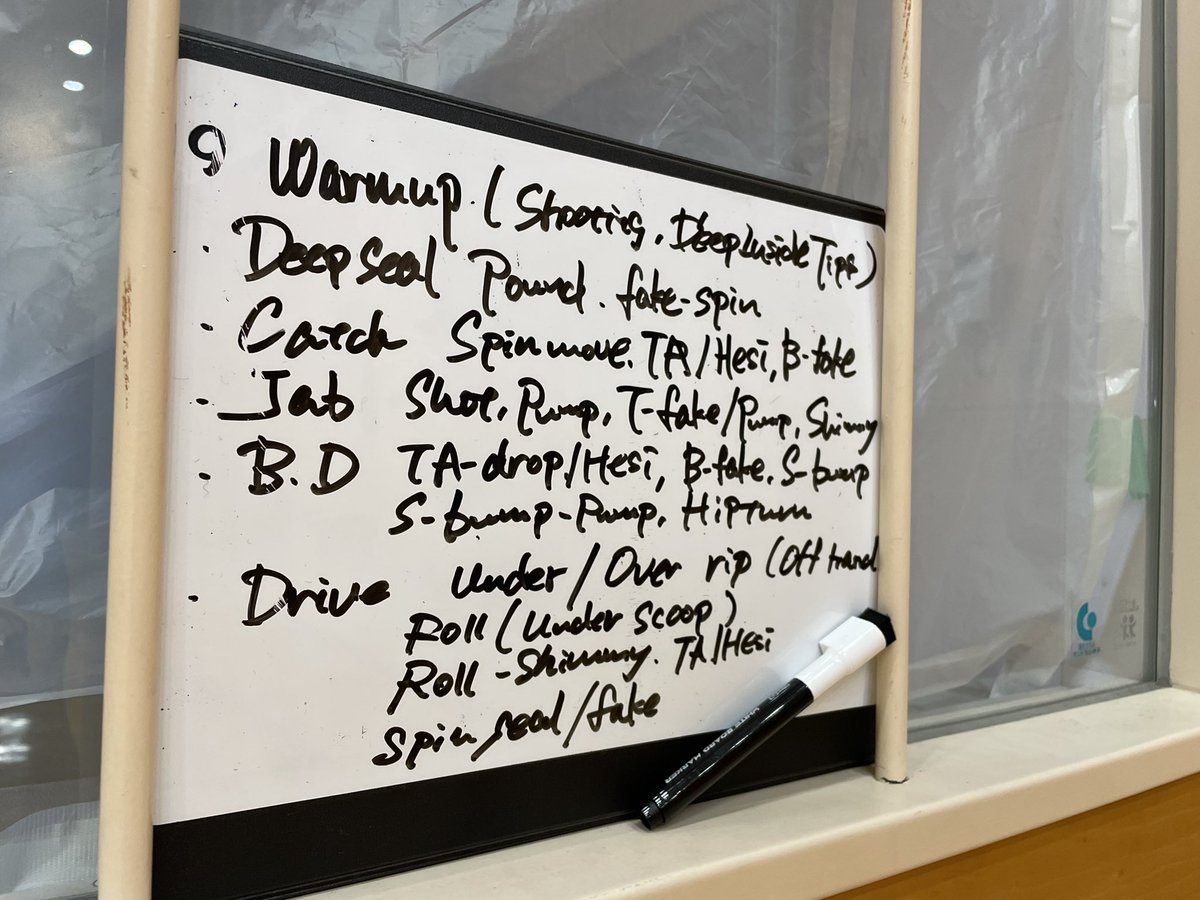 Warmup (Shooting, Deep Inside Tips)
· Deep seal Pound. fake-spin
· Catch Spin move. TA/Hesi, B-fake
· Jab Shot, Pump, T-fake/Pump, Shimmy
· B.D TA-drop/Hesi, B-fake. S-bump
S-bump-Pump, Hip Turn
· Drive Under/Over rip (Off hand
Roll (Under scoop)
Roll-Shimmy. TA/Hesi
Spin seal/fake
WHITE BOARD MARKER